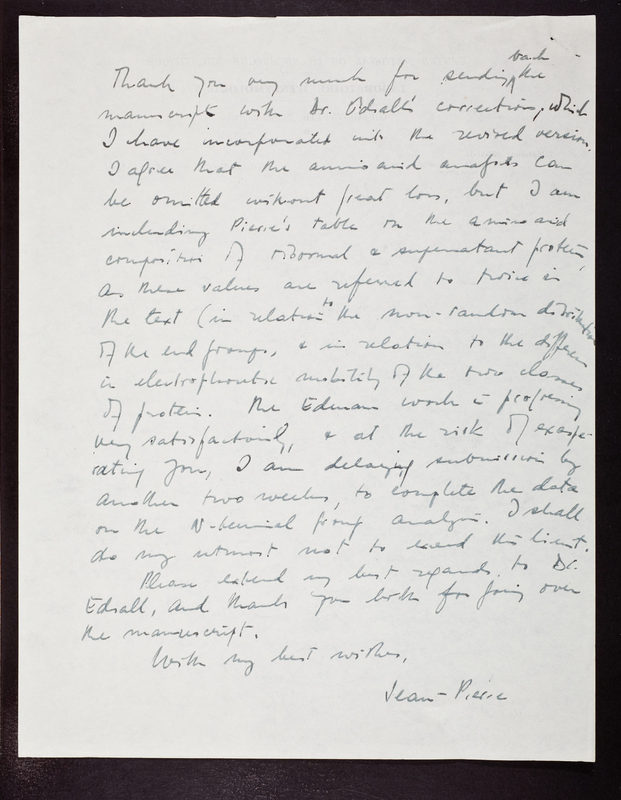 back
Thank you very much for sending the
manuscript with Dr. Edsall's corrections, which
I have incorporated into the revised version.
I agree that the amino acid analysis can
be omitted without great loss, but I am
including Pierre's table on the amino acid
composition of ribosomal & supernatant protein,
as these values are referred to twice in
the text (in relation to the non-random distribution
of the end groups, & in relation to the difference
in electrophoretic mobility of the two classes
of protein. The Edman work is progressing
very satisfactorily, & at the risk of exaspe-
rating you, I am delaying submission by
another two weeks, to complete the data
on the N-terminal group analysis. I shall
do my utmost not to exceed this limit.
Please extend my best regards to Dr.
Edsall, and thank you both for going over
the manuscript.
With my best wishes,
Jean-Pierre